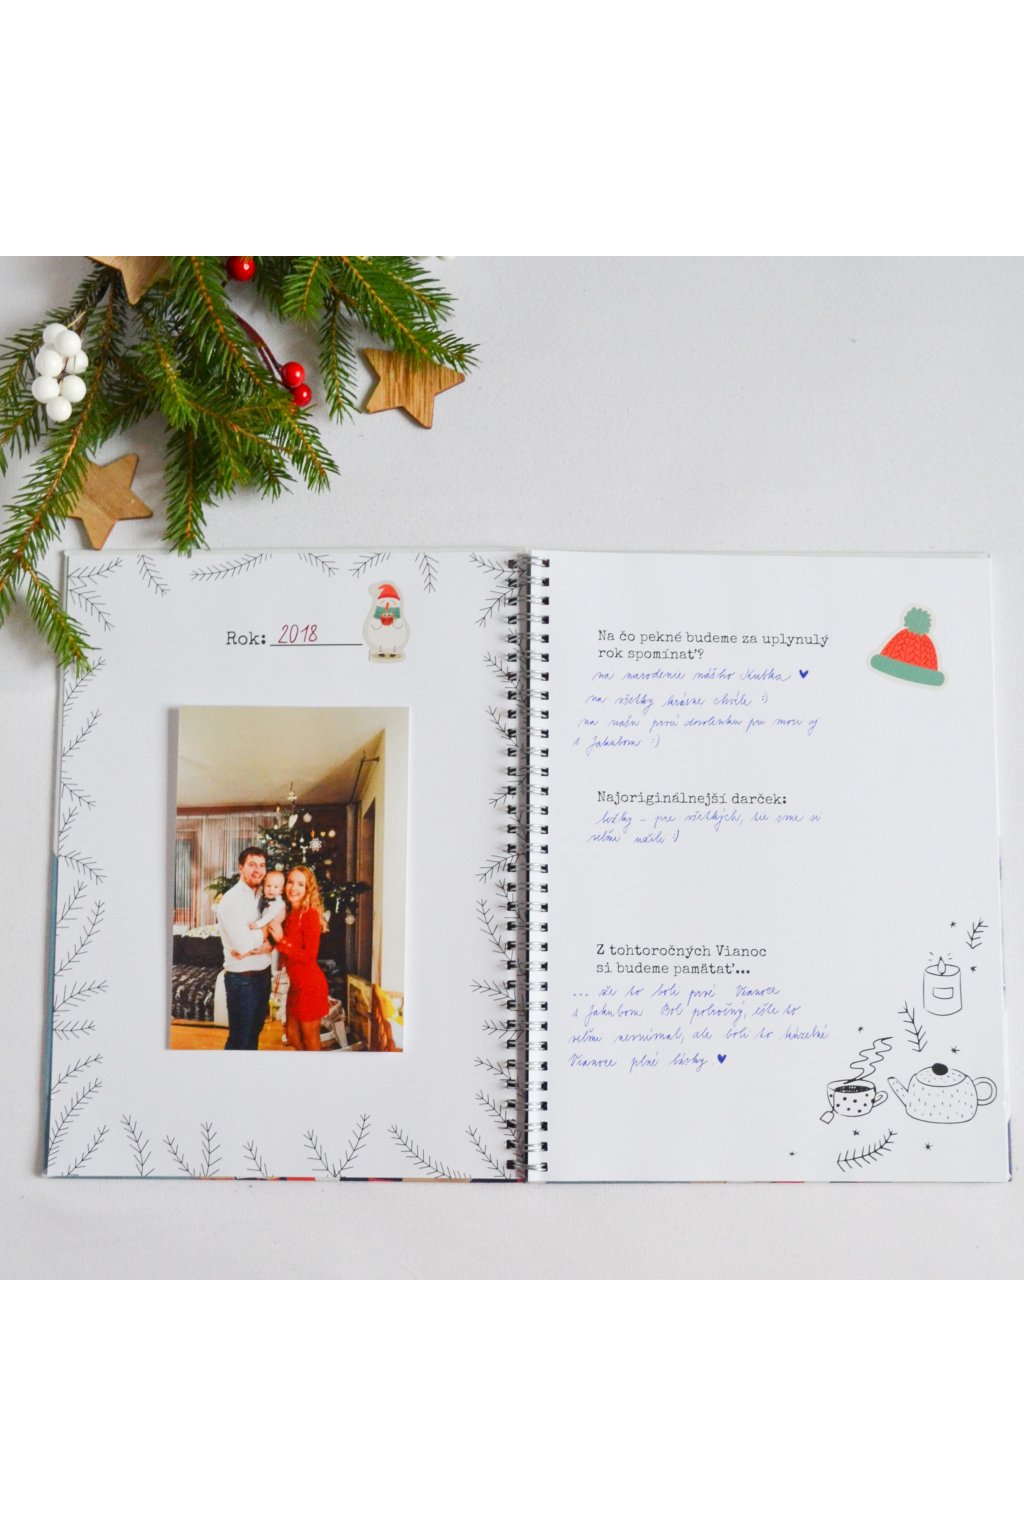 Rok: 2018
Na čo pekné budeme za uplynulý
rok spomínať?
na narodenie nášho Kubka ♥
na všetky krásne chvíle :)
na našu prvú dovolenku pri mori aj
s Jakubom :)
Najoriginálnejší darček:
bežky – pre všetkých, tie sme si
veľmi užili :)
Z tohtoročných Vianoc
si budeme pamätať...
... že to boli prvé Vianoce
s Jakubom. Bol polročný, ešte to
veľmi nevnímal, ale boli to kúzelné
Vianoce plné lásky. ♥